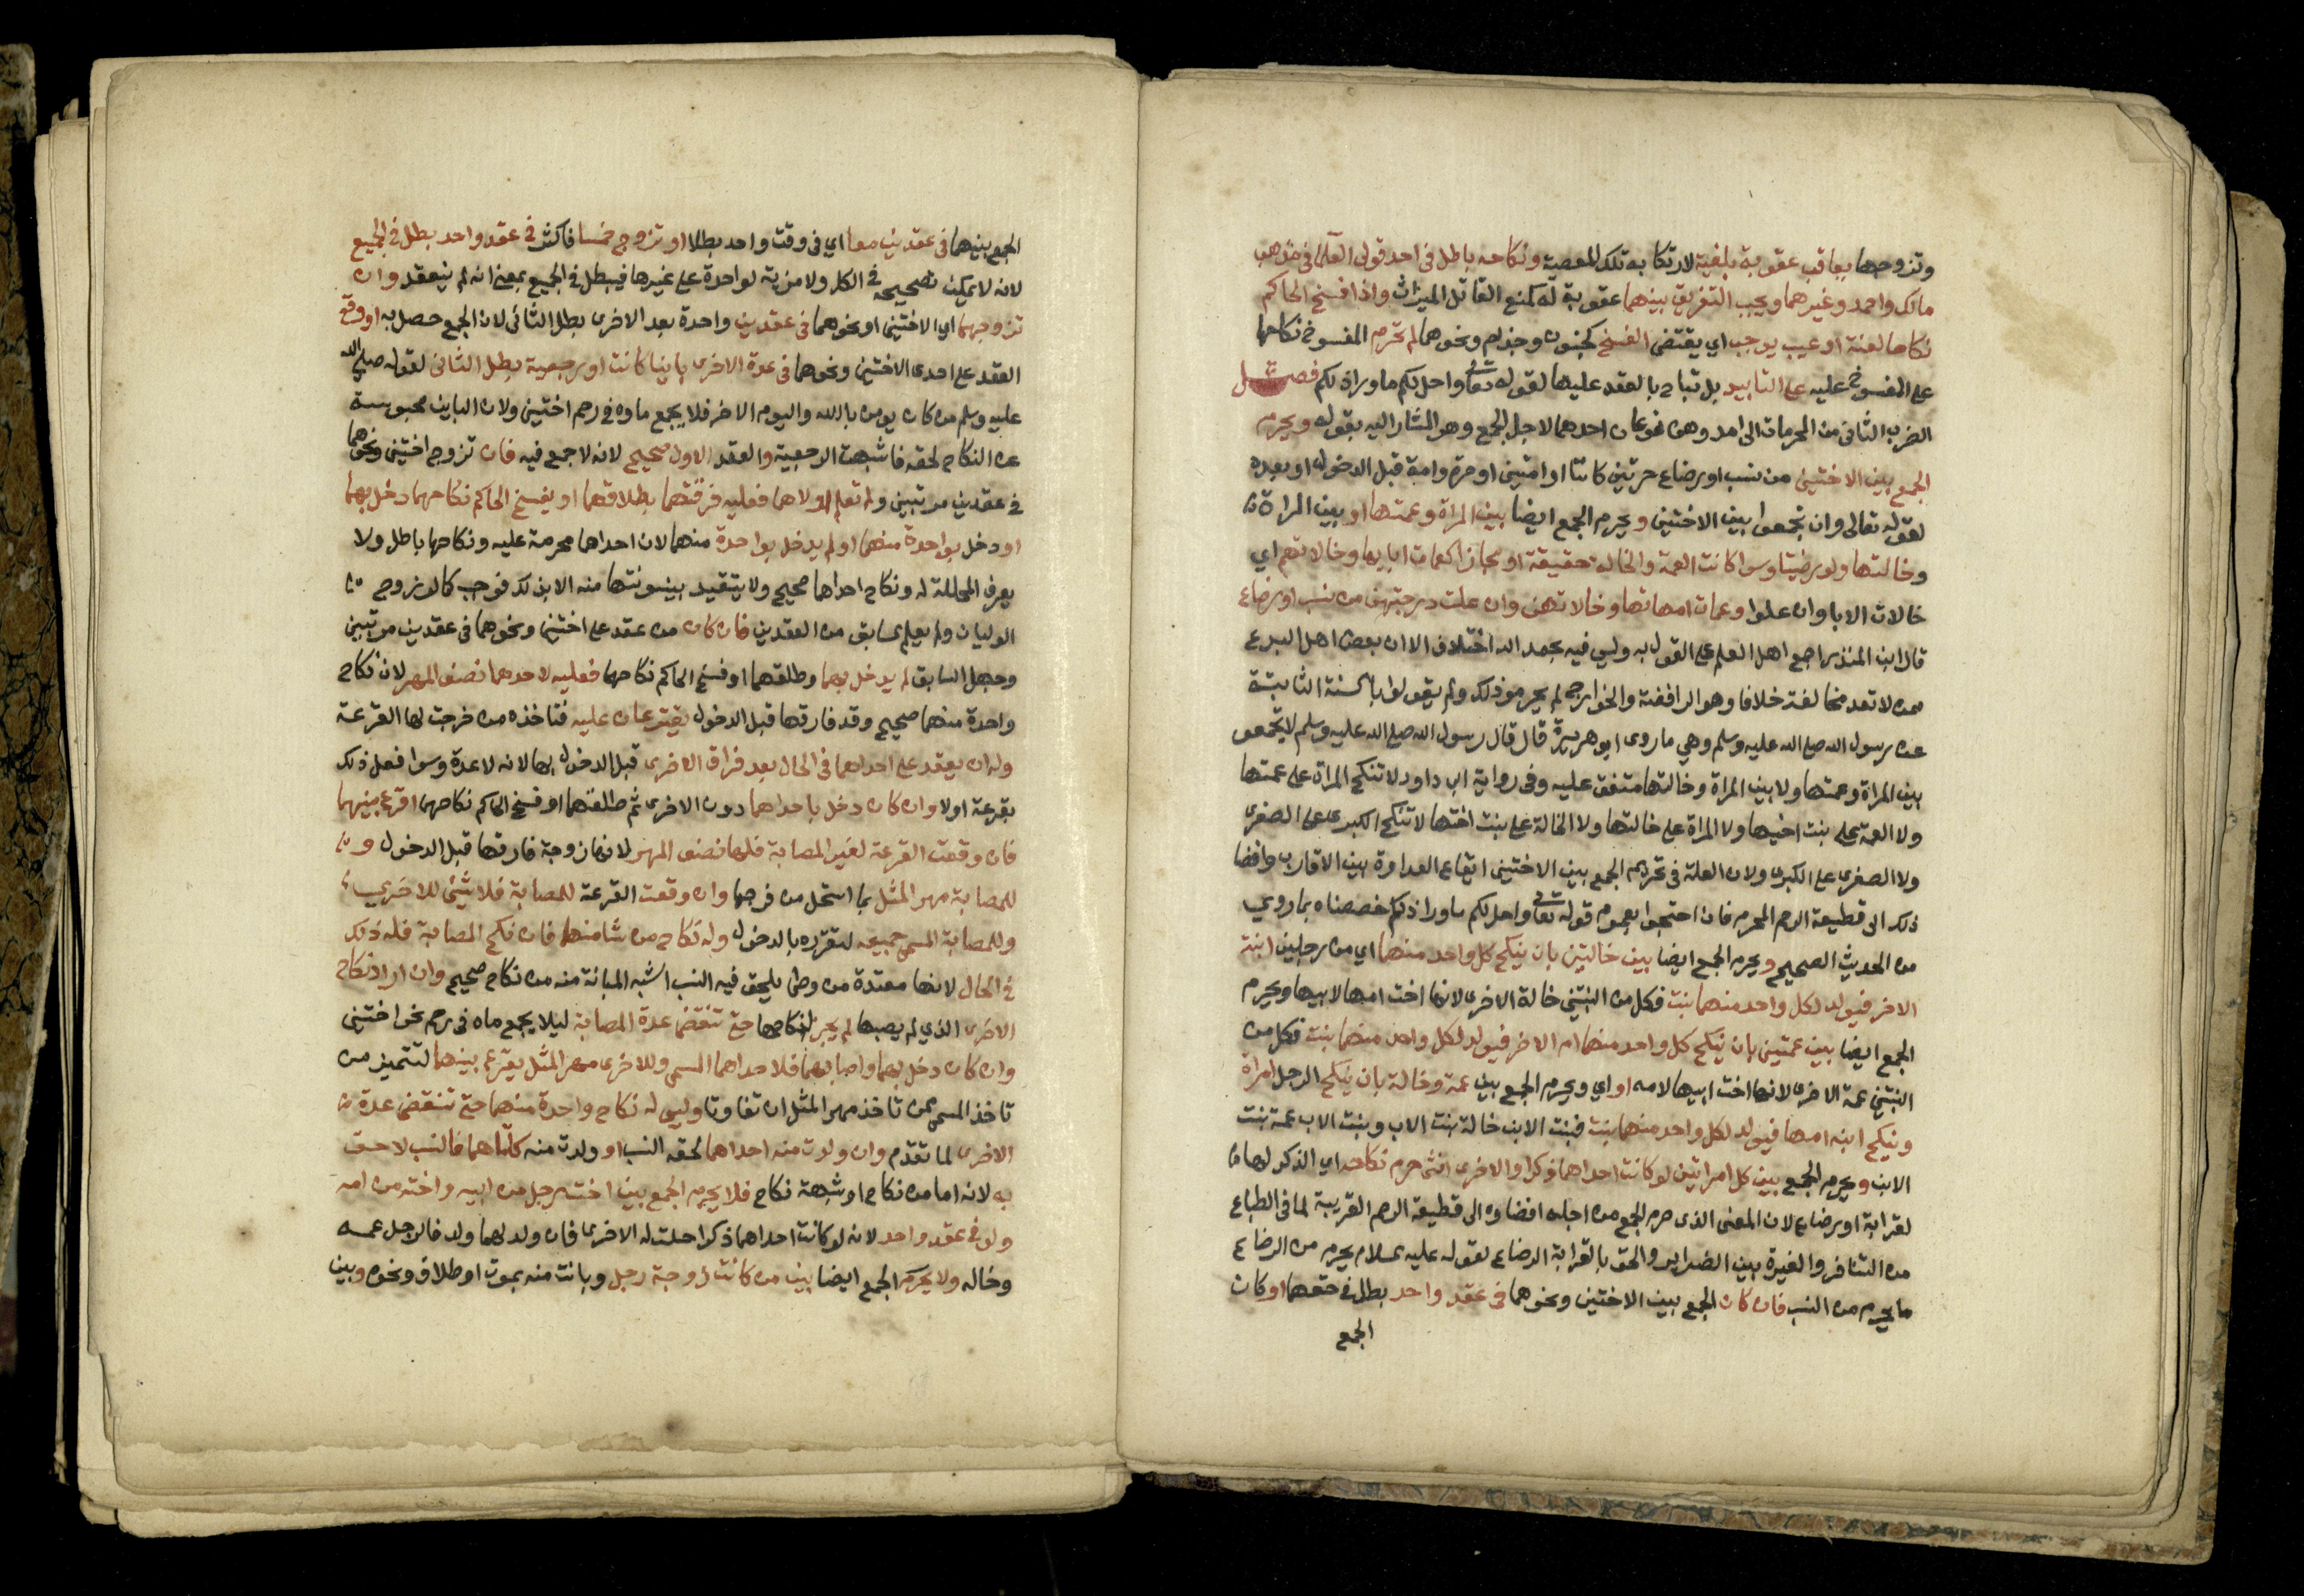 وتزوجها يعاقب عقوبة بليغة لارتكابه تلك المعصية ونكاحه باطل في احد قولي العلما في مذهب
مالك واحمد وغيرهما ويجب التفريق بينهما عقوبة له كمنع القاتل الميراث واذا فسخ الحاكم
نكاحا لعنة او عيب يوجب اي يقتضي الفسخ كجنون وجذام ونحوهما لم تحرم المفسوخ نكاحها
على المفسوخ عليه على التابيد بل تباح بالعقد عليها لقوله تعالى واحل لكم ما وراء ذلكم فصل
الضرب الثاني من المحرمات الى امد وهن نوعان احدهما لاجل الجمع وهو المشار اليه بقوله ويحرم
الجمع بين الاختين من نسب او رضاع حرتين كانتا او امتين او حرة وامة قبل الدخول او بعده
لقوله تعالى وان تجمعوا بين الاختين ويحرم الجمع ايضا بين المراة وعمتها او بين المراة
وخالتها ولو رضيتا وسوا كانت العمة والخالة حقيقة او مجازا كعمات ابايها وخالاتهم اي
خالات الابا وان علوا وعمات امهاتها وخالاتهن وان علت درجتهن من نسب او رضاع
قال ابن المنذر اجمع اهل العلم على القول به وليس فيه بحمد الله اختلاف الا ان بعض اهل البدع
ممن لا تعد مخالفته خلافا وهو الرافضة والخوارج لم يحرموا ذلك ولم يقولوا بالسنة الثابتة
عن رسول الله صلى الله عليه وسلم وهي ما روى ابو هريرة قال قال رسول الله صلى الله عليه وسلم لا يجمعوا
بين المراة وعمتها ولا بين المراة وخالتها متفق عليه وفي رواية ابي داود لا تنكح المراة على عمتها
ولا العمة على بنت اخيها ولا المراة على خالتها ولا الخالة على بنت اختها لا تنكح الكبرى على الصغرى
ولا الصغرى على الكبرى ولان العلة في تحريم الجمع بين الاختين ايقاع العداوة بين الاقارب وافضا
ذلك الى قطيعة الرحم المحرم فان احتجوا بعموم قوله تعالى واحل لكم ما ورا ذلكم خصصناه بما روي
من الحديث الصحيح ويحرم الجمع ايضا بين خالتين بان ينكح كل واحد منهما اي من رجلين ابنة
الاخر فيولد لكل واحد منهما بنت فكل من البنتين خالة الاخرى لانها اخت امها لابيها ويحرم
الجمع ايضا بين عمتين بان ينكح كل واحد منهما ام الاخر فيولد لكل واحد منهما بنت فكل من
البنتين عمة الاخرى لانها اخت ابيها لامه او اي ويحرم الجمع بين عمة وخالة بان ينكح الرجل امراة
وينكح ابنه امها فيولد لكل واحد منهما بنت فبنت الابن خالة بنت الاب وبنت الاب عمة بنت
الابن ويحرم الجمع بين كل امراتين لو كانت احداهما ذكرا والاخرى انثى حرم نكاحه اي الذكر لها
لقرابة او رضاع لان المعنى الذي حرم الجمع من اجله افضاوه الى قطيعة الرحم القريبة لما في الطباع
من التنافر والغيرة بين الضراير والحق بالقرابة الرضاع لقوله عليه السلام يحرم من الرضاع
ما يحرم من النسب فان كان الجمع بين الاختين ونحوهما في عقد واحد بطل في حقهما او كان
الجمع
الجمع بينهما في عقدين معا اي في وقت واحد بطلا او تزوج خمسا فاكثر في عقد واحد بطل في الجميع
لانه لا يمكن تصحيحه في الكل ولا مزية لواحدة على غيرها فيبطل في الجميع بمعنى انه لم ينعقد وان
تزوجهما اي الاختين او نحوهما في عقدين واحدة بعد الاخرى بطل الثاني لان الجمع حصل به او وقع
العقد على احدى الاختين ونحوهما في عدة الاخرى باينا كانت او رجعية بطل الثاني لقوله صلى الله
عليه وسلم من كان يومن بالله واليوم الاخر فلا يجمع ماوه في رحم اختين ولان الباين محبوسة
عن النكاح لحقه فاشبهت الرجعية والعقد الاول صحيح لانه لا جمع فيه فان تزوج اختين ونحوهما
في عقدين مرتبين ولم تعلم اولاهما فعليه فرقتهما بطلاقهما او بفسخ الحاكم نكاحهما دخل بهما
او دخل بواحدة منهما او لم يدخل بواحدة منهما لان احداهما محرمة عليه ونكاحها باطل ولا
يعرف المحللة له ونكاح احداهما صحيح ولا يتقيد بينونتها منه الا بذلك فوجب كما لو زوج
الوليان ولم يعلم سابق من العقدين فان كان من عقد على اختين ونحوهما في عقدين مرتبين
وجهل السابق لم يدخل بهما وطلقهما او فسخ الحاكم نكاحهما فعليه لاحدهما نصف المهر لان نكاح
واحدة منهما صحيح وقد فارقها قبل الدخول يقترعان عليه فتاخذه من خرجت لها القرعة
وله ان يعقد على احداهما في الحال بعد فراق الاخرى قبل الدخول بها لانه لا عدة وسوا فعل ذلك
بقرعة اولا وان كان دخل باحداهما دون الاخرى ثم طلقهما او فسخ الحاكم نكاحهما اقرع بينهما
فان وقعت القرعة لغير المصابة فلها نصف المهر لانها زوجة فارقها قبل الدخول و
للمصابة مهر المثل بما استحل من فرجها وان وقعت القرعة للمصابة فلا شئ للاخرى
وللمصابة المسمى جميعه لتقرره بالدخول وله نكاح من شا منهما فان نكح المصابة فله ذلك
في الحال لانها معتدة من وطي يلحق فيه النسب اشبه المبانة منه من نكاح صحيح وان اراد نكاح
الاخرى الذي لم يصبها لم يجز نكاحها حتى تنقضي عدة المصابة ليلا يجمع ماه في رحم نحو اختين
وان كان دخل بهما واصابهما فلاحداهما المسمى وللاخرى مهر المثل يقترع بينهما لتتميز من
تاخذ المسمى ممن تاخذ مهر المثل ان تفاوتا وليس له نكاح واحدة منهما حتى تنقضي عدة
الاخرى لما تقدم وان ولدت منه احداهما لحقه النسب او ولدت منه كلتاهما فالنسب لاحق
به لانه اما من نكاح او شبهة نكاح فلا يحرم الجمع بين اخت رجل من ابيه واخته من امه
ولو في عقد واحد لانه لو كانت احداهما ذكرا حلت له الاخرى فان ولد لهما ولد فالرجل عمه
وخاله ولا يحرم الجمع ايضا بين من كانت زوجة رجل وبانت منه بموت او طلاق ونحوه وبين